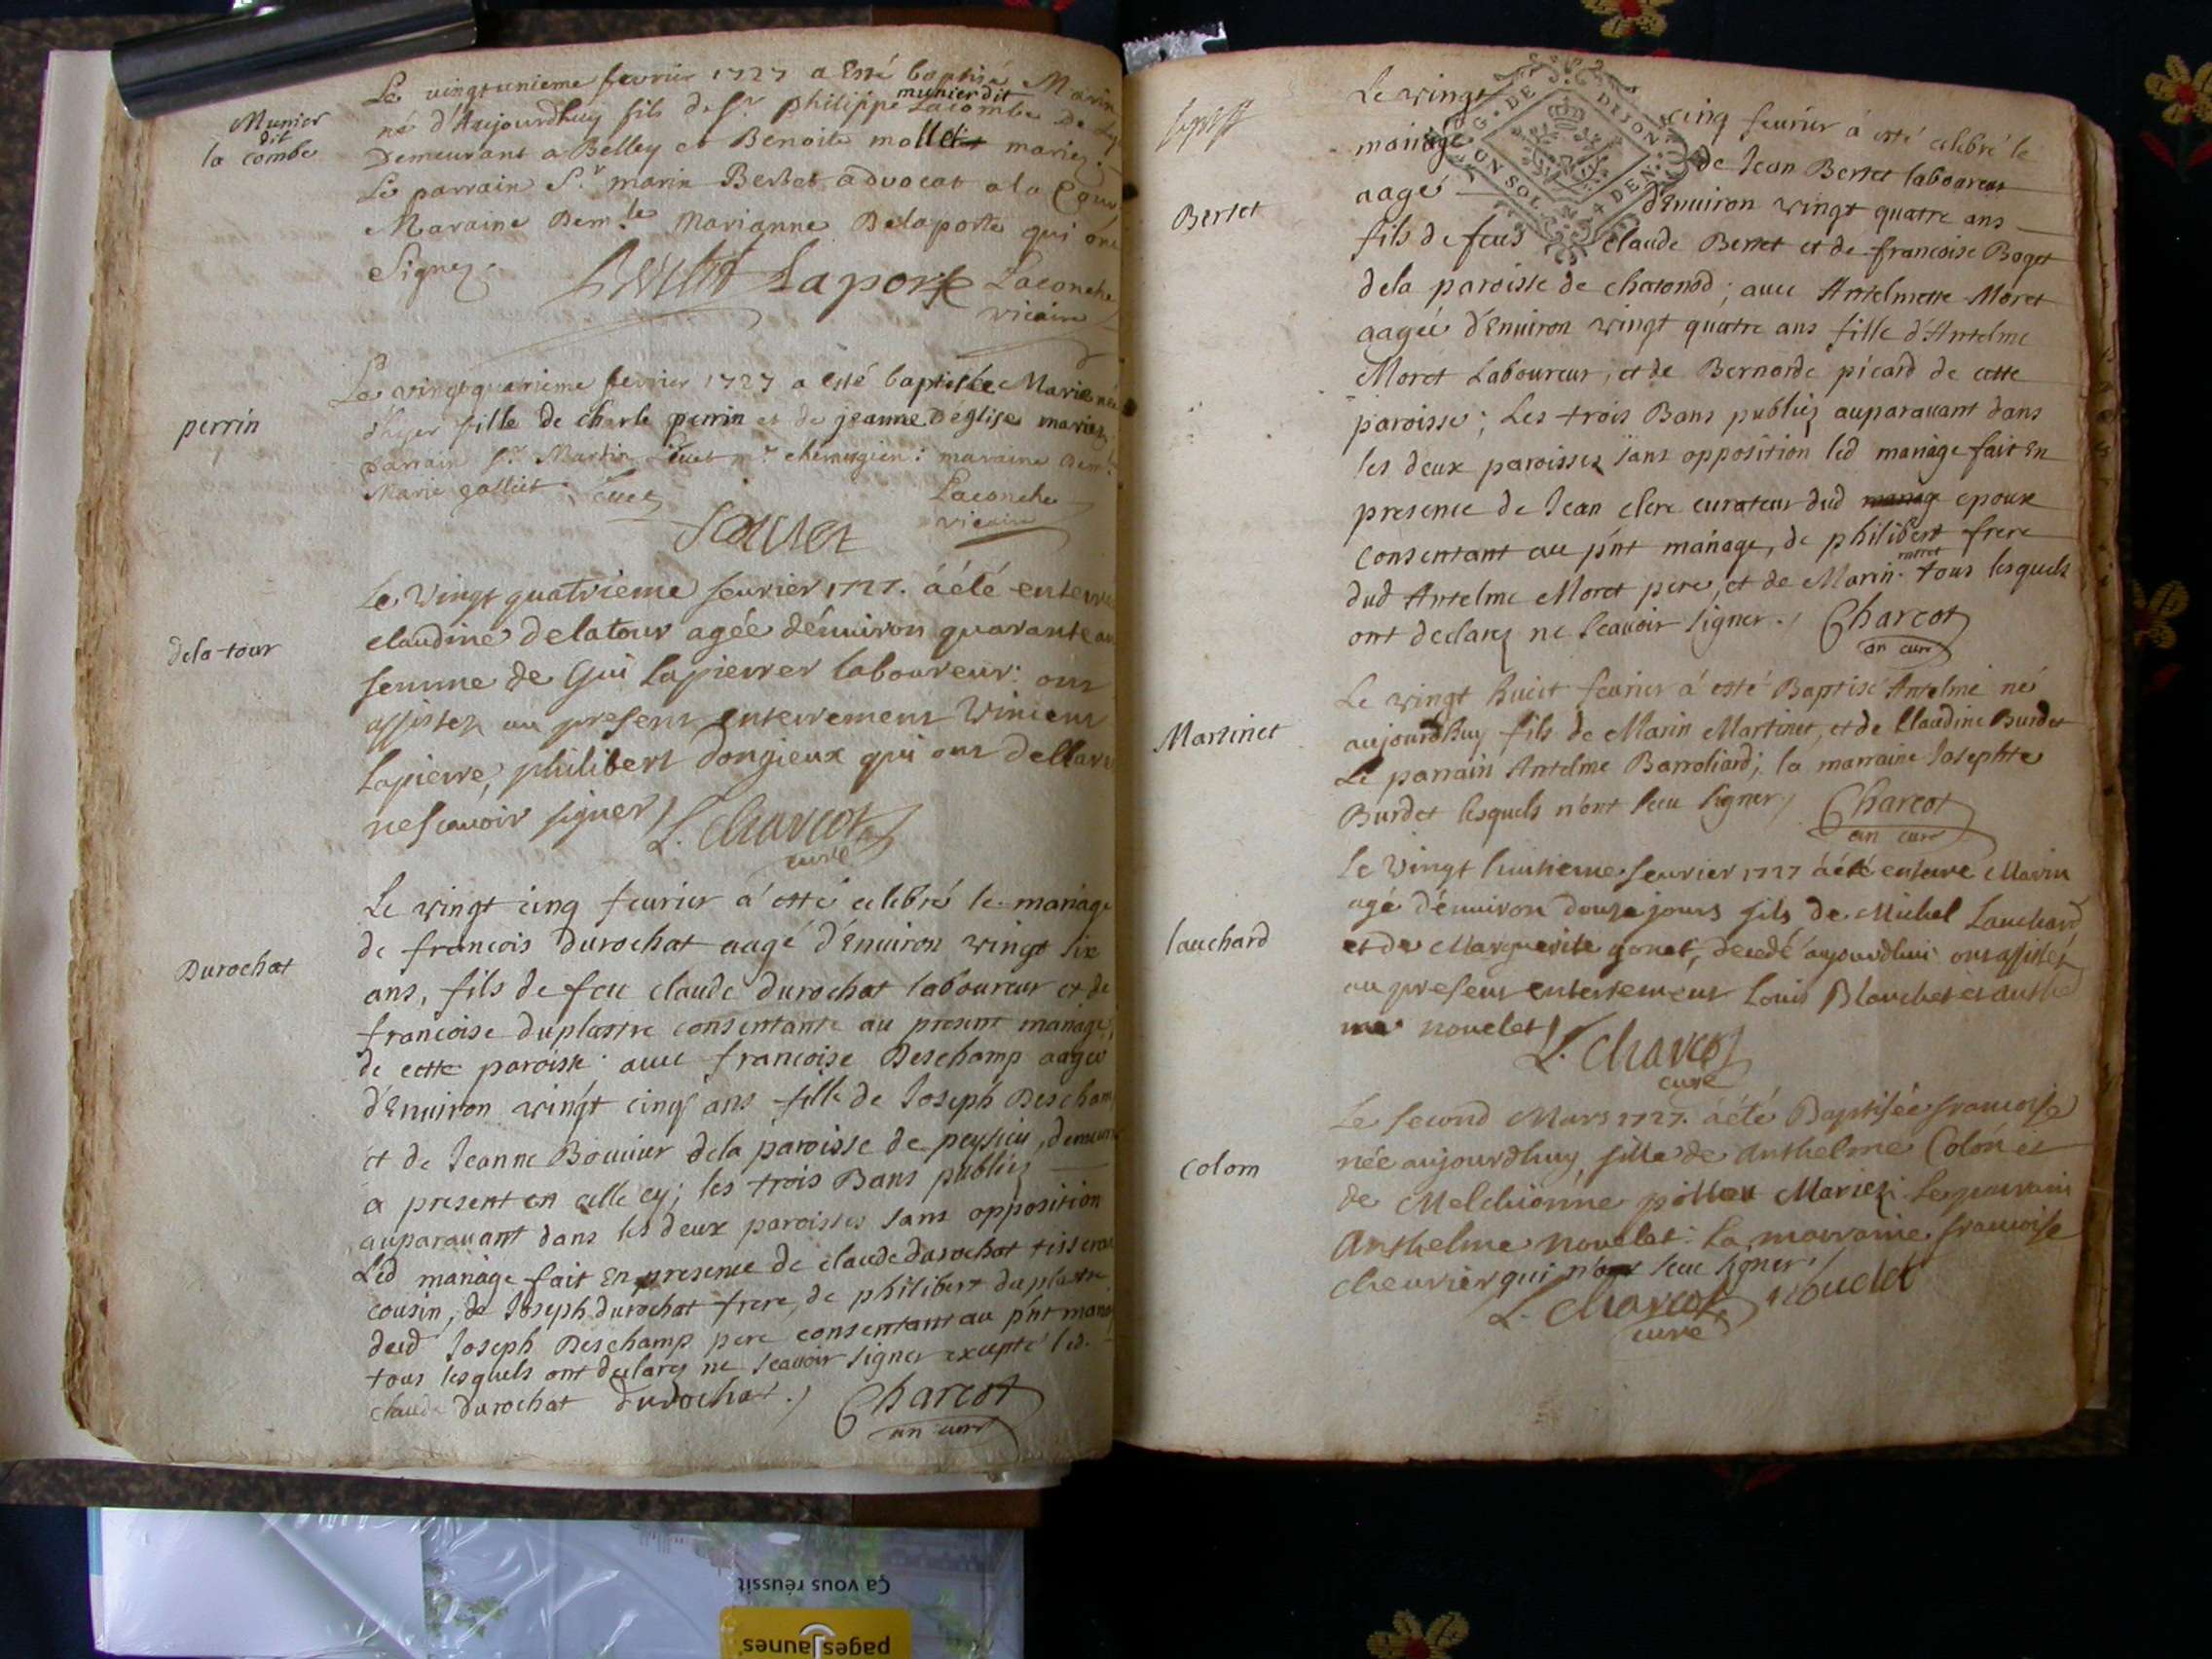 Munier
dit
la combe
Le vingtunieme fevrier 1727 a Esté baptisé Marin
né d'Aujourdhuy fils de Sr. philippe munier dit Lacombe De
Demeurant a Belley et Benoite mollet mariez.
Le parrain Sr. marin Bertet advocat a la Cour
Maraine Demlle Marianne Delaporte qui ont
Signez.
Laporte Laconche
vicaire
perrin
Le vingtquatrieme fevrier 1727 a esté baptisée Marie née
d'hyer fille de charle perrin et de jeanne Deglise mariez
parrain Sr. Martin mr. chirurgien: maraine Demlle
Marie galliet
Laconche
vicaire
dela tour
Le Vingt quatrieme feuvrier 1727. à été enterré
claudine delatour agée d'énuiron quarante an
femme de Gui Lapierrer laboureur: ont
assistez au present enterrement Vincent
Lapierre, philibert Donjieux qui ont dellaré
ne scauoir signer L. Charcot
curé
Durochat
Le wingt cinq feurier à esté celebré le mariage
de francois Durochat aagé d'Enuiron wingt six
ans, fils de feu claude Durochat laboureur et de
francoise duplastre consentante au present mariage,
de cette paroisse: auec francoise Deschamp aagée
d'Enuiron wingt cinq ans fille de Joseph Descham
et de Jeanne Bouuier dela paroisse de peysieu, demeure
a present en celle cy; les trois Bans publiez
auparauant dans les deux paroisses sans opposition
Led mariage fait En presence de claude durochat tisseran
cousin, de Joseph durochat frere, de philibert duplastre
dud Joseph Deschamp pere consentant au pnt maria
tous lesquels ont declarez ne scauoir signer excepté led.
claude durochat durochat. Charcot
an curé
Bertet
Le wingt cinq feurier à esté celebré le
mariage de Jean Bertet laboureur
aagé d'Enuiron wingt quatre ans
fils de feus claude Bertet et de francoise Boget
dela paroisse de chatonod; auec Antelmette Moret
aagée d'Enuiron wingt quatre ans fille d'Antelme
Moret Laboureur, et de Bernarde picard de cette
paroisse; Les trois Bans publiez auparauant dans
les deux paroisses sans opposition led mariage fait En
presence de Jean clerc curateur dud mariag epoux
consentant au pnt mariage, de philibert frere
dud Antelme Moret pere, et de Marin moret tous lesquels
ont declarez ne Scauoir signer. Charcot
an curé
Martinet
Le wingt huict feurier à esté Baptisé Antelme né
aujourdhuy fils de Marin Martinet, et de Claudine Burdet
Le parrain Antelme Barroliard; la marraine Josephte
Burdet lesquels n'ont sceu signer Charcot
an curé
lauchard
Le Vingt huitieme feurier 1727 à été enterré Marin
agé d'énuiron douze jours fils de Michel Lauchard
et de Marguerite gonet, decedé aujourdhui ont assistéz
au present enterrement Louis Blanchet et Anthel
me nouelet L. Charcot
curé
colom
Le Second Mars 1727. à été Baptisée francoise
née aujourdhuy, fille de Anthelme Colon et
de Melchionne Mariez. Le parrain
Anthelme nouelet: La marraine francoise
cheurier qui n'ont sceu signer
L. Charcot nouelet
curé
G. DE DIJON
UN SOL 4 DEN.
Ça vous réussit
pagesjaunes